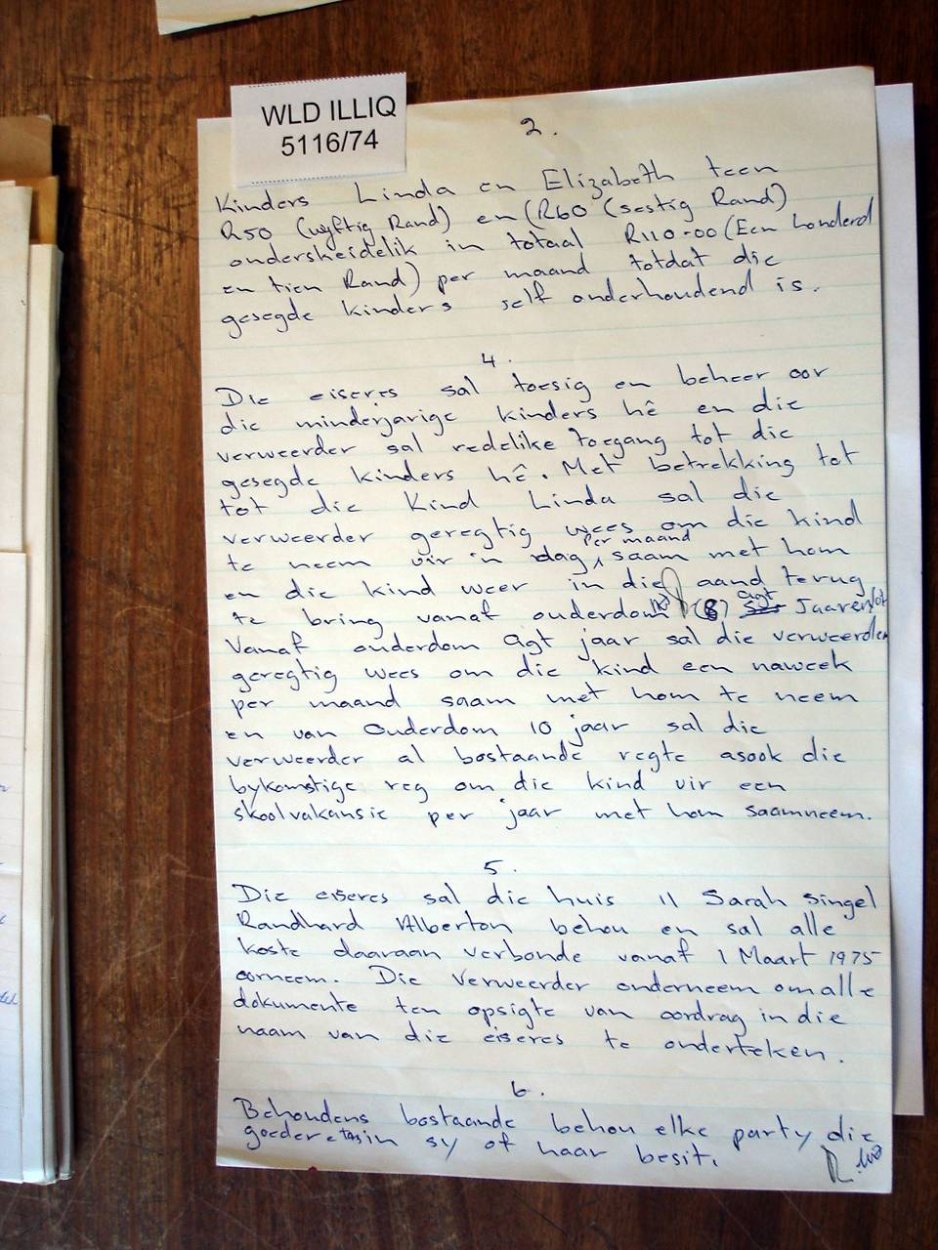 WLD ILLIQ
5116/74
2.
Kinders Linda en Elizabeth teen
R50 (vyftig Rand) en (R60 (sestig Rand)
ondersheidelik in totaal R110-00 (Een honderd
en tien Rand) per maand totdat die
gesegde kinders self onderhoudend is.
4.
Die eiseres sal toesig en beheer oor
die minderjarige kinders hê en die
verweerder sal redelike toegang tot die
gesegde kinders hê. Met betrekking tot
tot die Kind Linda sal die
verweerder geregtig wees om die kind
per maand
te neem vir 'n dag, saam met hom
en die kind weer in die aand terug
te bring vanaf ouderdom (8) agt Jaar
Vanaf ouderdom agt jaar sal die verweerder
geregtig wees om die kind een naweek
per maand saam met hom te neem
en van Ouderdom 10 jaar sal die
verweerder al bostaande regte asook die
bykomstige reg om die kind vir een
skoolvakansie per jaar met hom saamneem.
5.
Die eiseres sal die huis 11 Sarah Singel
Randhard Alberton behou en sal alle
koste daaraan verbonde vanaf 1 Maart 1975
oorneem. Die Verweerder onderneem om alle
dokumente ten opsigte van oordrag in die
naam van die eiseres te onderteken.
6.
Behoudens bostaande behou elke party die
goedere in sy of haar besit.